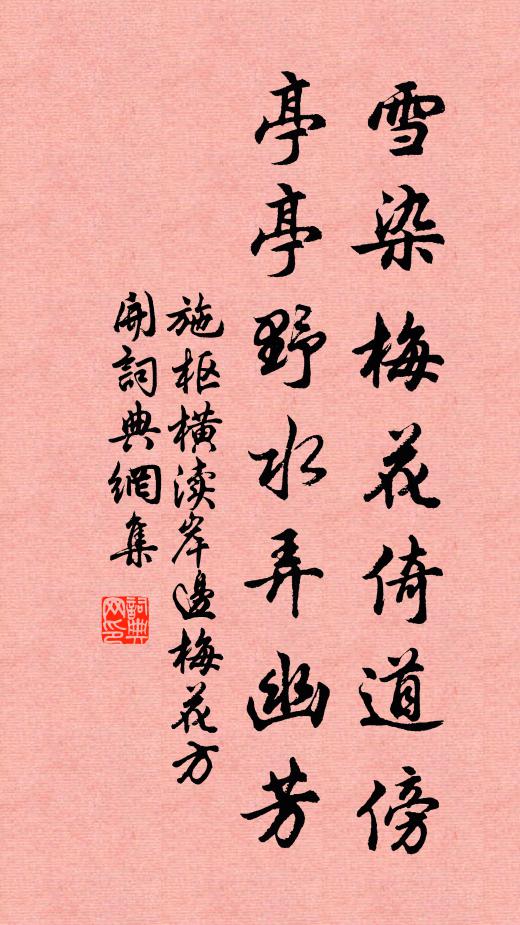 雪染梅花倚道傍
亭亭野水弄幽芳
施枢橫渎岸邊梅花方
開詞典網集
詞典网印